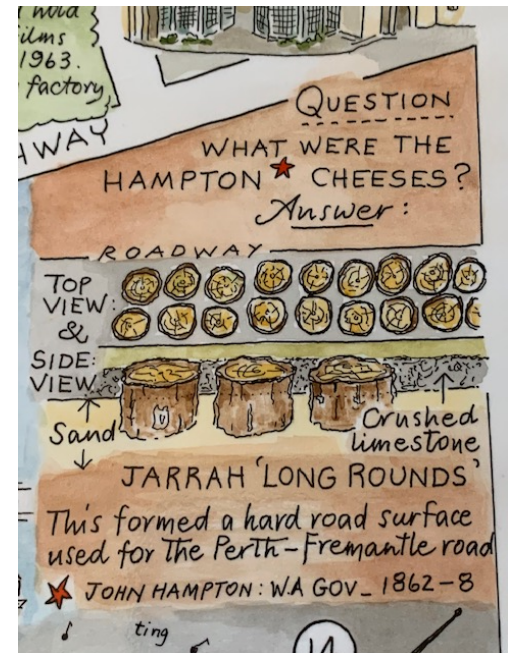 ilms
1963.
factory
HWAY
QUESTION
WHAT WERE THE
HAMPTON * CHEESES?
Answer:
ROADWAY
TOP
VIEW:
&
SIDE:
VIEW
Sand
Crushed
limestone
JARRAH 'LONG ROUNDS'
This formed a hard road surface
used for the Perth-Fremantle road
* JOHN HAMPTON: W.A GOV_ 1862-8
ting